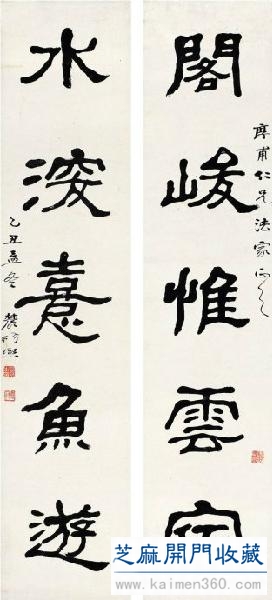 閣峻惟雲
甫仁兄法家正之
水深憙魚遊
乙丑孟冬
芝麻開門收藏
www.kaimen360.com